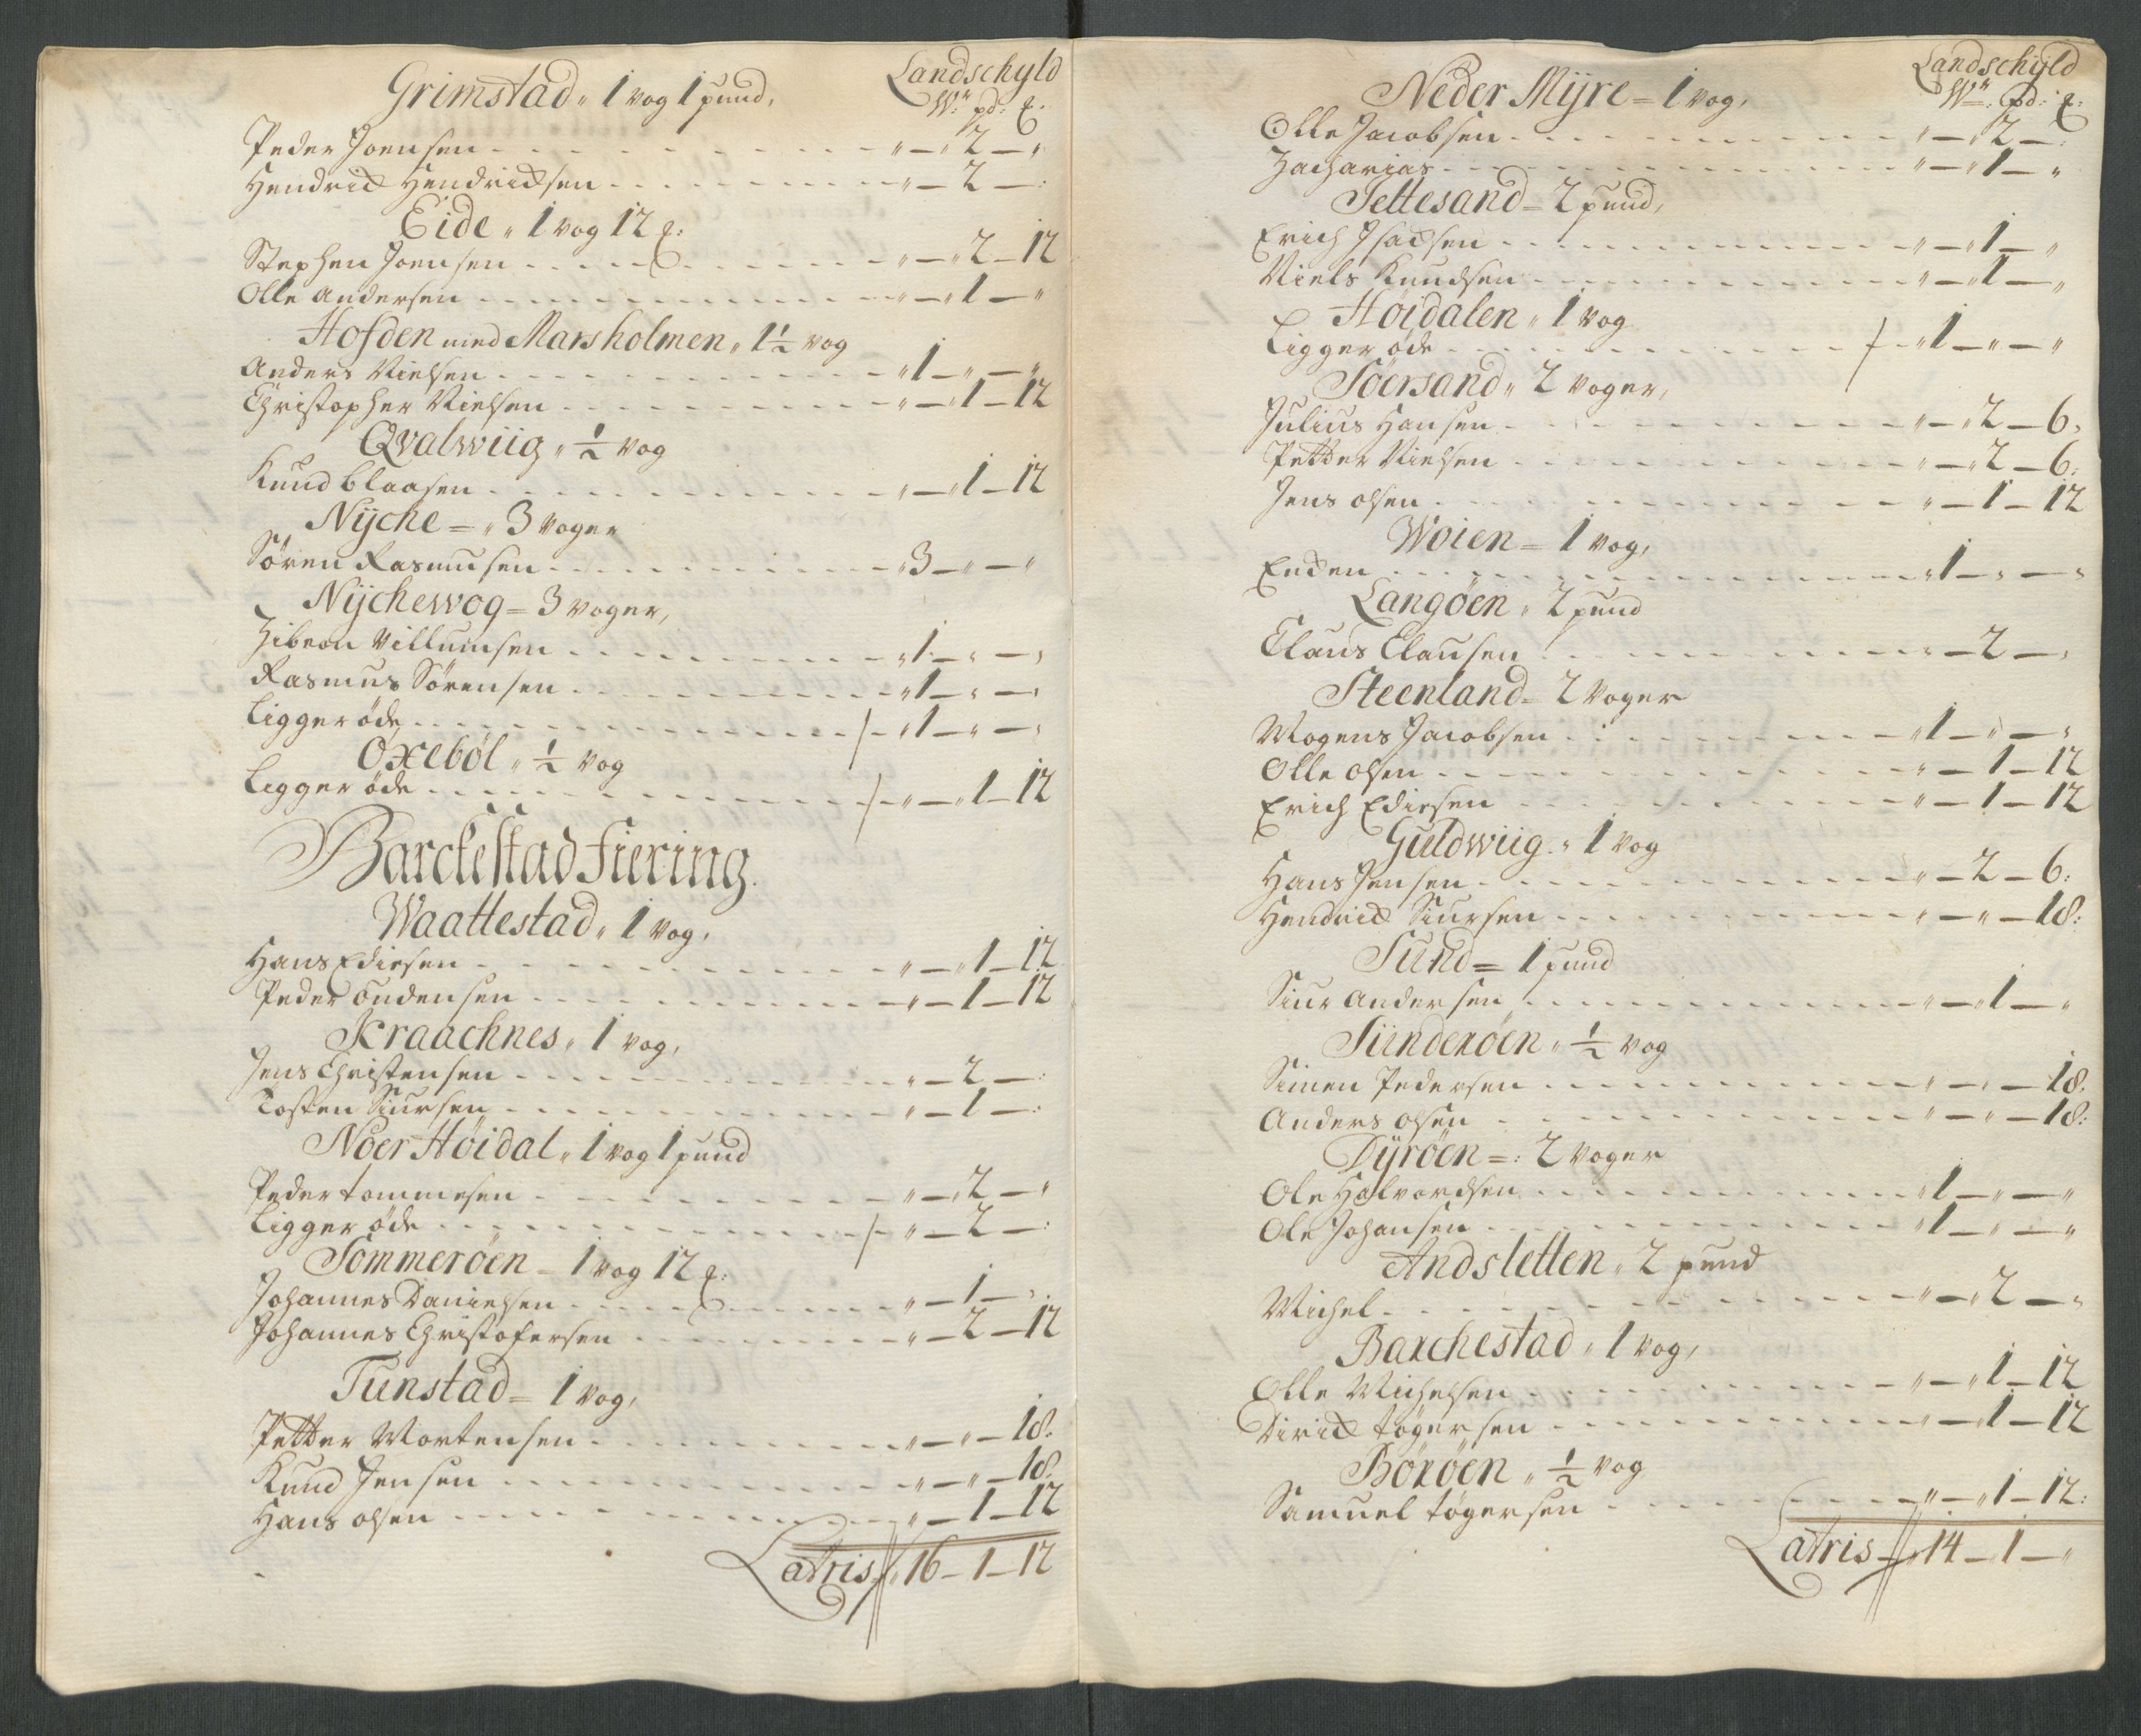 Landschyld
Grimstad „ 1 vog 1 pund,
Wr: pd: ℔:
Peder Joensen - - - „ — „ 2 — „
Hendrich Hendrichsen - - - „ — 2 — :
Eide „ 1 vog 12 ℔:
Stephen Joensen - - - „ — „ 2 — 12
Olle Andersen - - - „ — „ 1 — „
Hofden med Marsholmen „ 1 1/2 vog
Anders Nielsen - - - „ 1 — „ — „
Christopher Nielsen - - - „ — „ 1 — 12
Qvalwiig „ 1/2 vog
Knud Claasen - - - „ — „ 1 — 12
Nÿche = „ 3 voger
Sören Rasmusen - - - „ 3 — „ — „
Nÿchewog = 3 voger,
Villumsen - - - „ 1 — „ — „
Rasmus Sörensen - - - „ 1 — „ — „
Ligger øde - - - / - „ 1 — „ — „
Oxeböl „ 1/2 vog
Ligger øde - - - / - „ — „ 1 — 12
Barckestad Fiering.
Waattestad „ 1 vog,
Hans Ediesen - - - „ — „ 1 — 12
Peder Endensen - - - „ — 1 — 12
Kraachnes „ 1 vog,
Jens Christensen - - - „ — 2 — :
Tosten Siursen - - - „ — 1 — :
Noer Höidal „ 1 vog 1 pund
Peder Tommesen - - - „ — „ 2 — „
Ligger øde - - - / - „ — 2 — :
Sommeröen = 1 vog 12 ℔:
Johannes Danielsen - - - „ — 1 — :
Johannes Christofersen - - - „ — 2 — 12
Tunstad = 1 vog,
Petter Mortensen - - - „ — „ — 18:
Knud Jensen - - - „ — „ — 18:
Hans olsen - - - „ — 1 — 12
Latris „ 16 — 1 — 12
Landschyld
Neder Mÿre = 1 vog,
Wr: pd: ℔:
Olle Jacobsen - - - „ — „ 2 — :
Zacharias - - - „ — „ 1 — „
Settesand = 2 pund,
Erich Isachsen - - - „ — „ 1 — „
Niels Knudsen - - - „ — „ 1 — „
Höidalen „ 1 vog
Ligger øde - - - / - „ 1 — „ — „
Söersand „ 2 voger,
Julius Hansen - - - „ — „ 2 — 6:
Petter Nielsen - - - „ — „ 2 — 6:
Jens olsen - - - „ — 1 — 12
Woien = 1 vog,
Enken - - - „ 1 — „ — „
Langöen „ 2 pund
Claus Clausen - - - „ — 2 — :
Steenland = 2 voger
Mogens Jacobsen - - - „ 1 — „ — „
Olle olsen - - - „ — 1 — 12
Erich Ediesen - - - „ — 1 — 12
Guldwiig „ 1 vog
Hans Jensen - - - „ — 2 — 6:
Hendrich Siursen - - - „ — „ — 18:
Sund = 1 pund
Siur Andersen - - - „ — „ 1 — „
Sunderöen „ 1/2 vog
Simen Pedersen - - - „ — „ — 18:
Anders olsen - - - „ — „ — 18:
Dÿröen =: 2 voger
Ole Halvordsen - - - „ 1 — „ — „
Ole Johansen - - - „ 1 — „ — „
Andsletten „ 2 pund
Michel - - - „ — „ 2 — „
Barchestad „ 1 vog,
Olle Michelsen - - - „ — „ 1 — 12
Dirich Tögersen - - - „ — „ 1 — 12
Böröen „ 1/2 vog
Samuel Tögersen - - - „ — „ 1 — 12:
Latris „ 14 — 1 — „